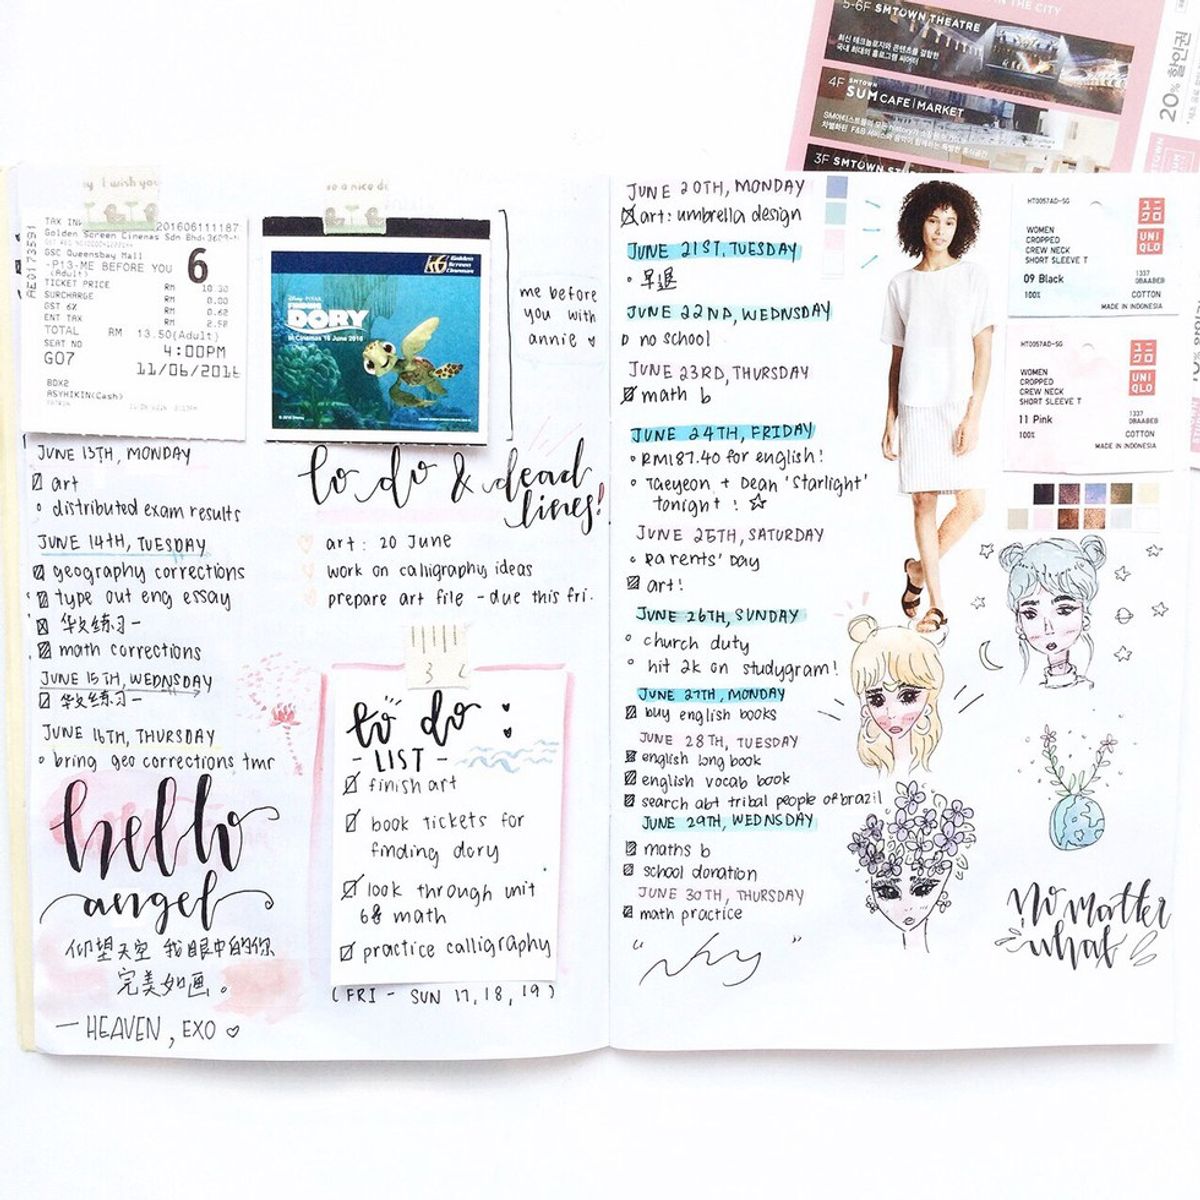 5-6F SMTOWN THEATRE
최신 테크놀로지와 콘텐츠를 결합한
국내 최대의 홀로그램 씨어터
4F SMTOWN
SUM CAFE | MARKET
3F SMTOWN
IN THE CITY
20% 할인권
I wish you
TAX IN
20160611187
Golden Screen Cinemas Sdn Bhd
GSC Queensbay Mall
-P13-ME BEFORE YOU
(Adult)
6
TICKET PRICE RM 10.30
SURCHARGE RM 0.00
GST 6% RM 0.62
ENT TAX RM 2.58
TOTAL RM 13.50(Adult)
SEAT NO
G07
4:00PM
11/06/2016
BOX2
ASYHIKIN(Cash)
Golden
Screen
Cinemas
Disney PIXAR
FINDING
DORY
In Cinemas 16 June 2016
me before
you with
annie
JUNE 13TH, MONDAY
art
distributed exam results
JUNE 14TH, TUESDAY
geography corrections
type out eng essay
华文练习一
math corrections
JUNE 15TH, WEDNSDAY
华文练习一
JUNE 16TH, THURSDAY
bring geo corrections tmr
hello
angel
仰望天空 我眼中的你
完美如画。
— HEAVEN, EXO
to do & dead
lines!
art: 20 June
work on calligraphy ideas
prepare art file - due this fri.
to do :
- LIST -
finish art
book tickets for
finding dory
look through unit
6&8 math
practice calligraphy
(FRI - SUN 17, 18, 19)
JUNE 20TH, MONDAY
art: umbrella design
JUNE 21ST, TUESDAY
早退
JUNE 22ND, WEDNSDAY
no school
JUNE 23RD, THURSDAY
math b
JUNE 24TH, FRIDAY
RM187.40 for english!
Taeyeon + Dean 'Starlight'
tonight!
JUNE 25TH, SATURDAY
Parents' Day
art!
JUNE 26TH, SUNDAY
church duty
hit 2k on studygram!
JUNE 27TH, MONDAY
buy english books
JUNE 28TH, TUESDAY
english long book
english vocab book
search abt tribal people of brazil
JUNE 29TH, WEDNSDAY
maths b
school donation
JUNE 30TH, THURSDAY
math practice
HT0057AD-SG
ユニ
クロ
UNI
QLO
WOMEN
CROPPED
CREW NECK
SHORT SLEEVE T
09 Black
1337
0BAABEB
100% COTTON
MADE IN INDONESIA
HT0057AD-SG
ユニ
クロ
UNI
QLO
WOMEN
CROPPED
CREW NECK
SHORT SLEEVE T
11 Pink
1337
0BAABEB
100% COTTON
MADE IN INDONESIA
no matter
what